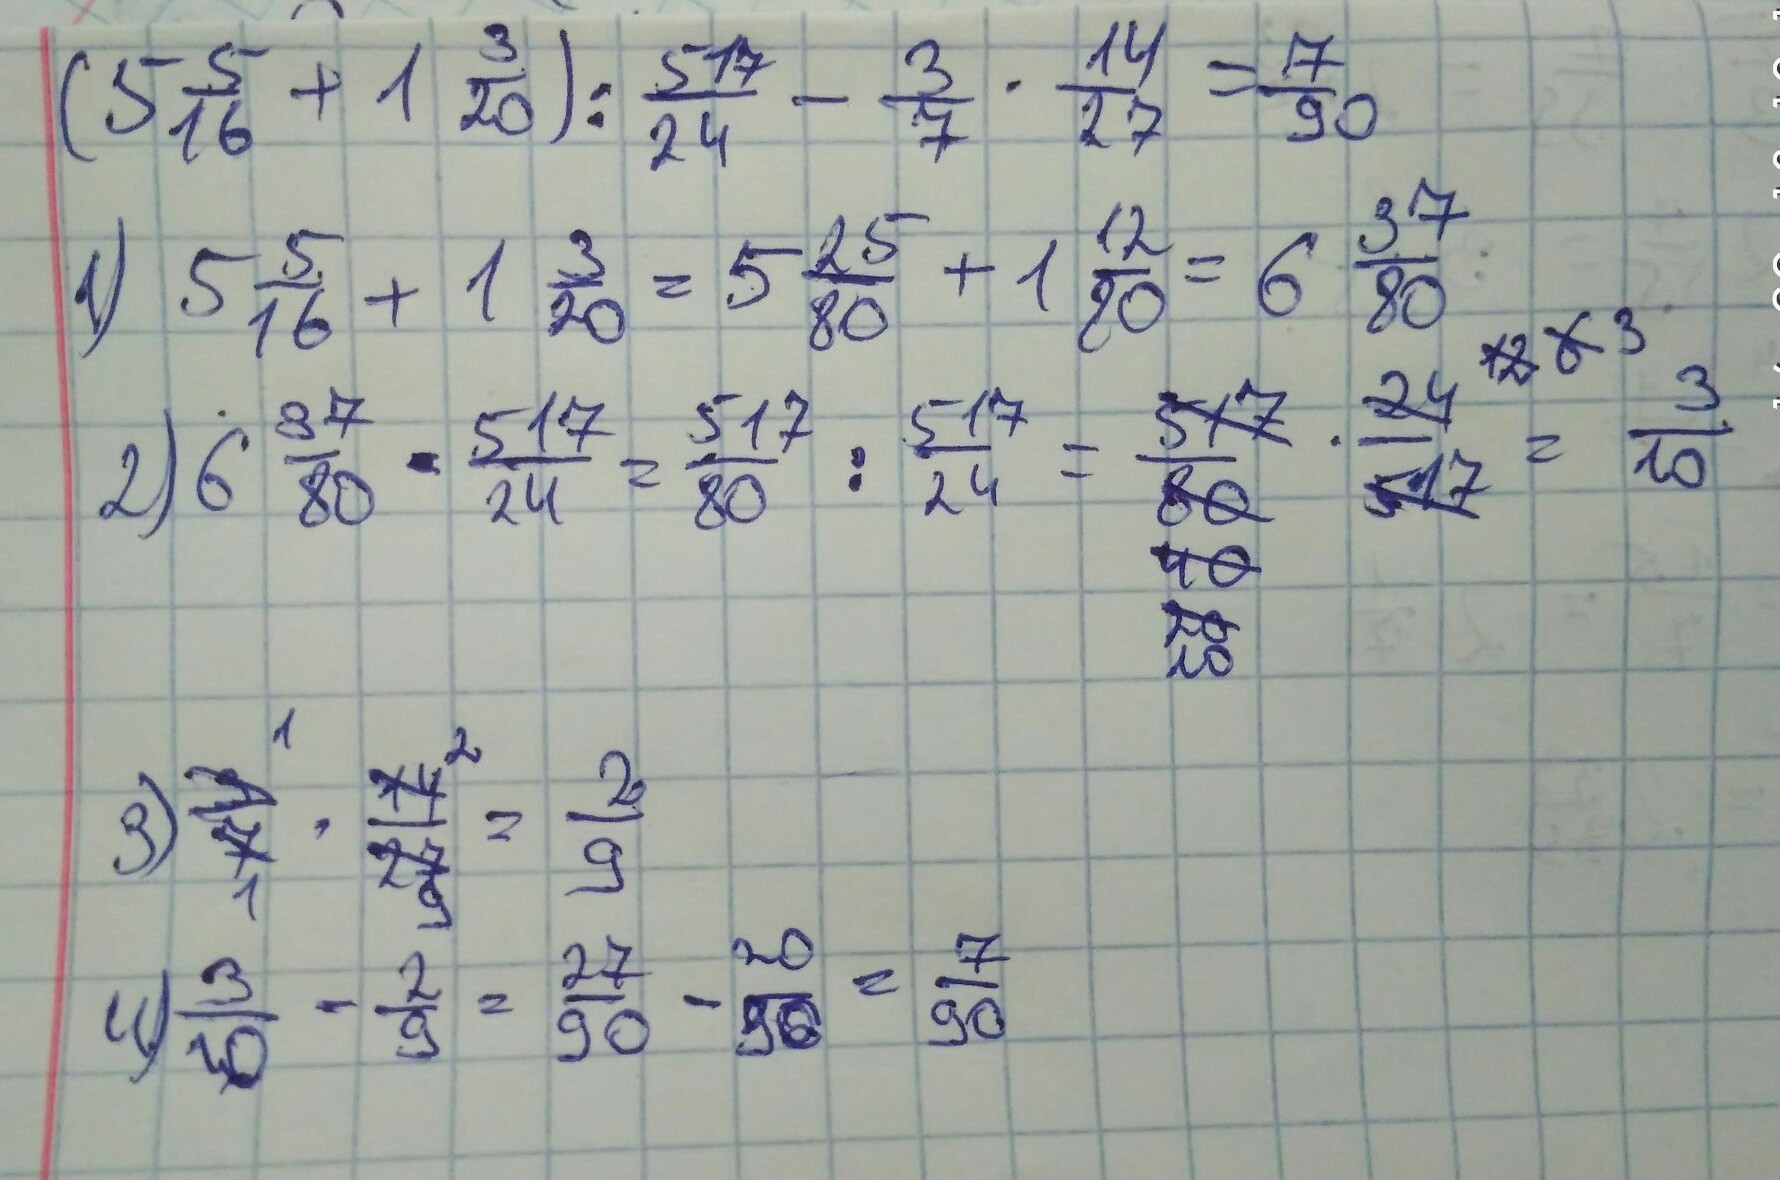 (5 5/16 + 1 3/20) : 517/24 - 3/7 · 14/27 = 7/90
1) 5 5/16 + 1 3/20 = 5 25/80 + 1 12/80 = 6 37/80
2) 6 37/80 : 517/24 = 517/80 : 517/24 = 517/80 · 24/517 = 3/10
12 6 3
40
20
10
1 2
3) 3/7 · 14/27 = 2/9
1 9
4) 3/10 - 2/9 = 27/90 - 20/90 = 7/90